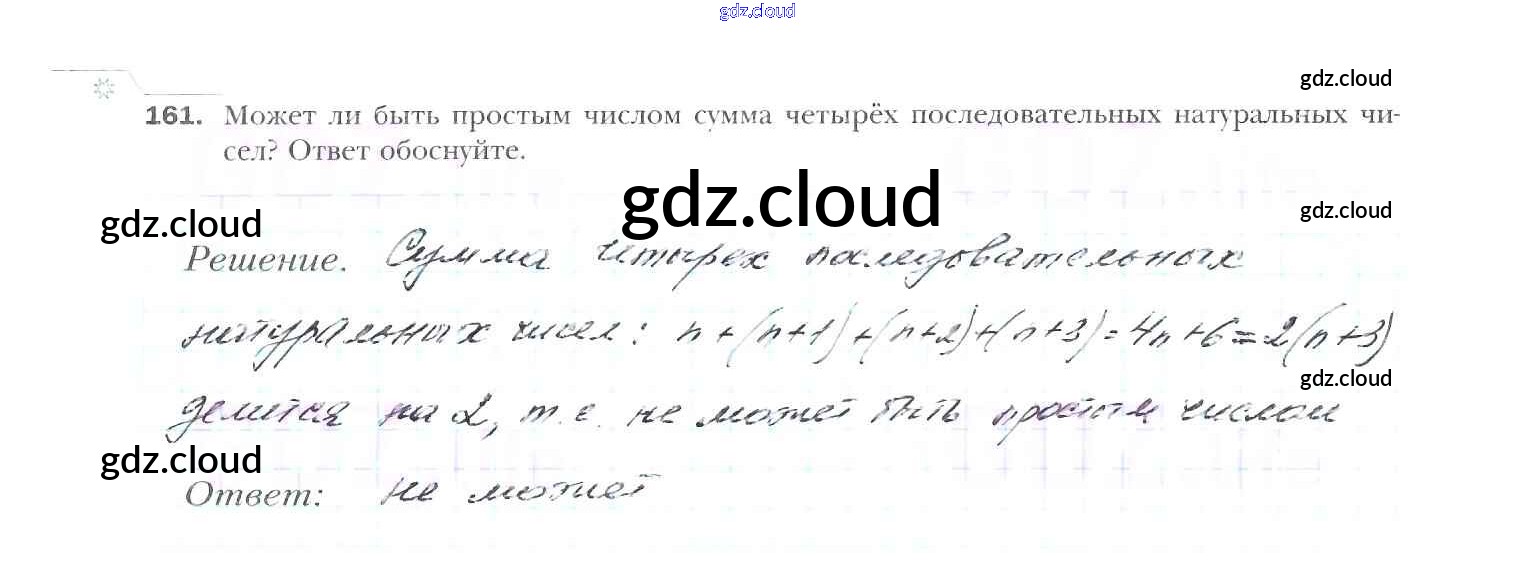 gdz.cloud
gdz.cloud
161. Может ли быть простым числом сумма четырёх последовательных натуральных чи-
сел? Ответ обоснуйте.
gdz.cloud
gdz.cloud
gdz.cloud
Решение. Сумма четырех последовательных
натуральных чисел: n+(n+1)+(n+2)+(n+3)=4n+6=2(n+3)
gdz.cloud
делится на 2, т.е. не может быть простым числом
gdz.cloud
Ответ: не может